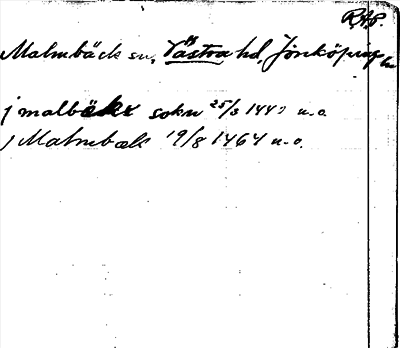 R.A.P.
Malmbäck sn, Västra hd, Jönköpings ln
j malbäkx sokn 25/3 144 u.o.
j Malmbæk 19/8 1464 u.o.